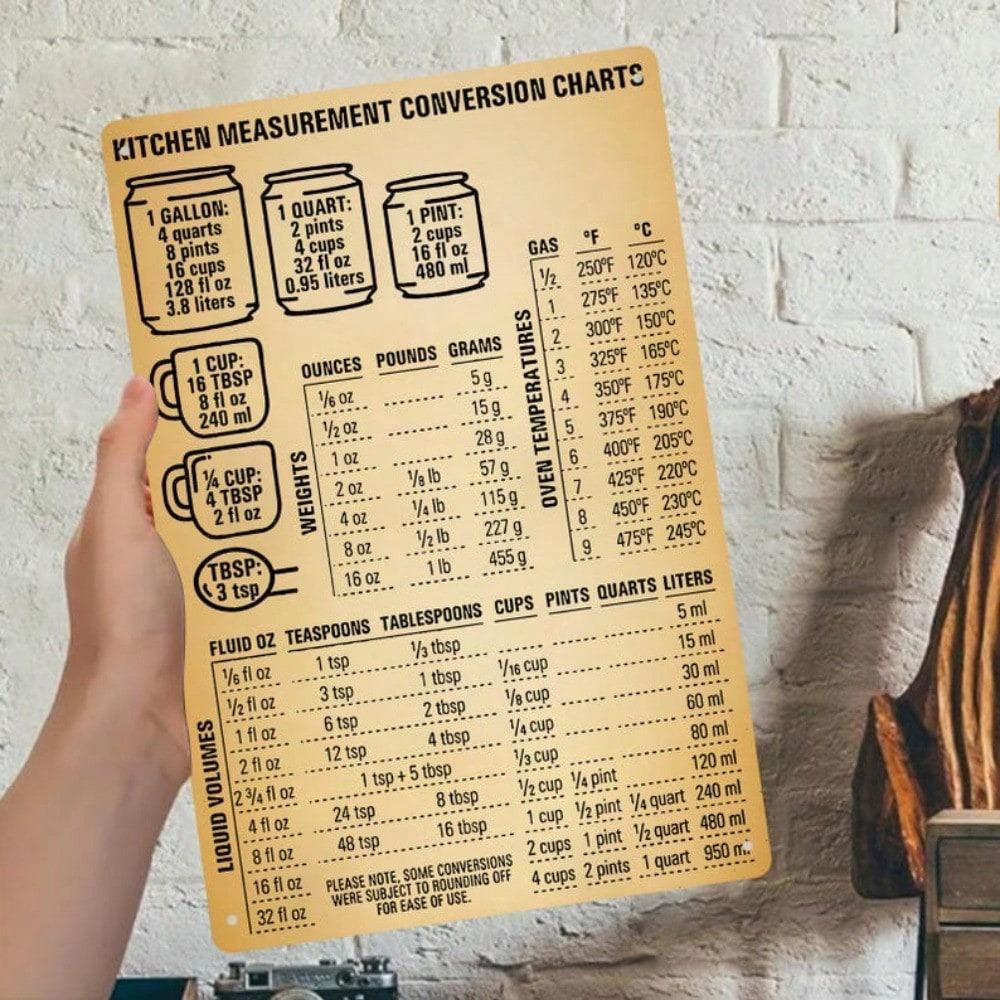 KITCHEN MEASUREMENT CONVERSION CHARTS
1 GALLON:
4 quarts
8 pints
16 cups
128 fl oz
3.8 liters
1 QUART:
2 pints
4 cups
32 fl oz
0.95 liters
1 PINT:
2 cups
16 fl oz
480 ml
1 CUP:
16 TBSP
8 fl oz
240 ml
1/4 CUP:
4 TBSP
2 fl oz
TBSP:
3 tsp
WEIGHTS
OUNCES POUNDS GRAMS
1/6 oz 5 g
1/2 oz 15 g
1 oz 28 g
2 oz 1/8 lb 57 g
4 oz 1/4 lb 115 g
8 oz 1/2 lb 227 g
16 oz 1 lb 455 g
OVEN TEMPERATURES
GAS °F °C
1/2 250°F 120°C
1 275°F 135°C
2 300°F 150°C
3 325°F 165°C
4 350°F 175°C
5 375°F 190°C
6 400°F 205°C
7 425°F 220°C
8 450°F 230°C
9 475°F 245°C
LIQUID VOLUMES
FLUID OZ TEASPOONS TABLESPOONS CUPS PINTS QUARTS LITERS
1/6 fl oz 1 tsp 1/3 tbsp 5 ml
1/2 fl oz 3 tsp 1 tbsp 1/16 cup 15 ml
1 fl oz 6 tsp 2 tbsp 1/8 cup 30 ml
2 fl oz 12 tsp 4 tbsp 1/4 cup 60 ml
2 3/4 fl oz 1 tsp + 5 tbsp 1/3 cup 80 ml
4 fl oz 24 tsp 8 tbsp 1/2 cup 1/4 pint 120 ml
8 fl oz 48 tsp 16 tbsp 1 cup 1/2 pint 1/4 quart 240 ml
16 fl oz 2 cups 1 pint 1/2 quart 480 ml
32 fl oz 4 cups 2 pints 1 quart 950 ml
PLEASE NOTE, SOME CONVERSIONS
WERE SUBJECT TO ROUNDING OFF
FOR EASE OF USE.